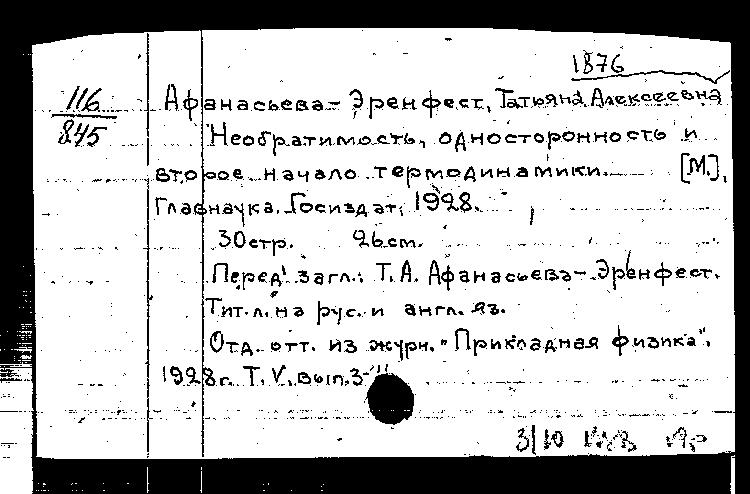 1876
116
845
Афанасьева-Эренфест, Татьяна Алексеевна
Необратимость, односторонность и
второе начало термодинамики. [М.],
Главнаука. Госиздат, 1928.
30 стр. 26 см.
Перед загл.: Т. А. Афанасьева-Эренфест.
Тит. л. на рус. и англ. яз.
Отд. отт. из журн. "Прикладная физика".
1928 г. Т. V, вып. 3-
3/10